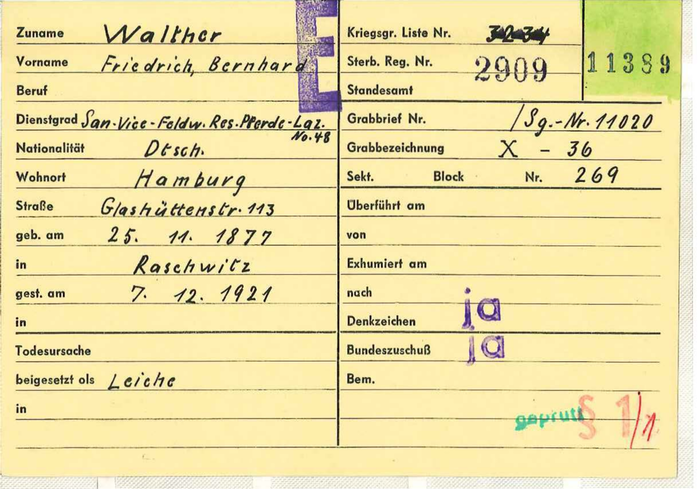 E
Zuname Walther
Vorname Friedrich, Bernhard
Beruf
Dienstgrad San-Vice-Feldw. Res. Pferde-Laz.
No. 48
Nationalität Dtsch.
Wohnort Hamburg
Straße Glashüttenstr. 113
geb. am 25. 11. 1877
in Raschwitz
gest. am 7. 12. 1921
in
Todesursache
beigesetzt als Leiche
in
Kriegsgr. Liste Nr.
Sterb. Reg. Nr. 2909
11389
Standesamt
Grabbrief Nr. /Sg.-Nr. 11020
Grabbezeichnung X - 36
Sekt. Block Nr. 269
Überführt am
von
Exhumiert am
nach
Denkzeichen ja
Bundeszuschuß ja
Bem.
geprüft § 1/1